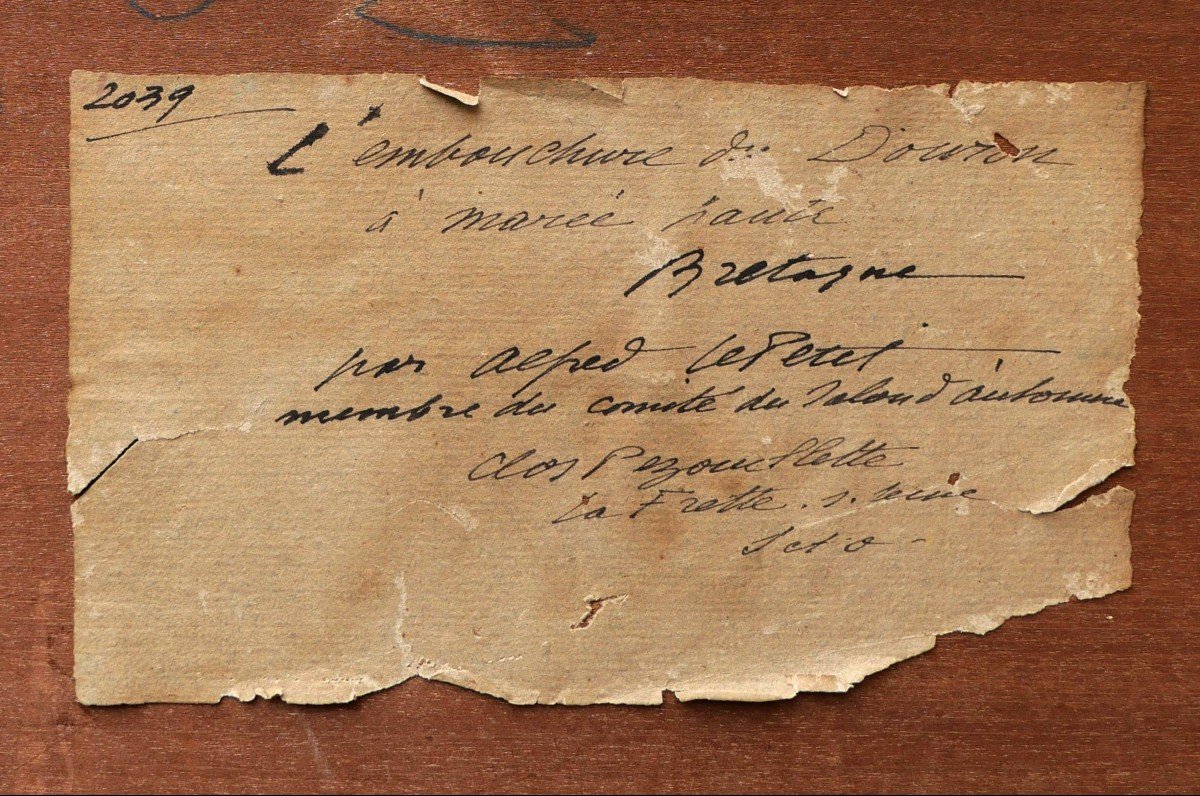 2039
L'embouchure du Douron
à marée haute
Bretagne
par Alfred Le Petit
membre du comité du Salon d'automne
Clos Pezouillette
La Frette. s. Seine
S et O